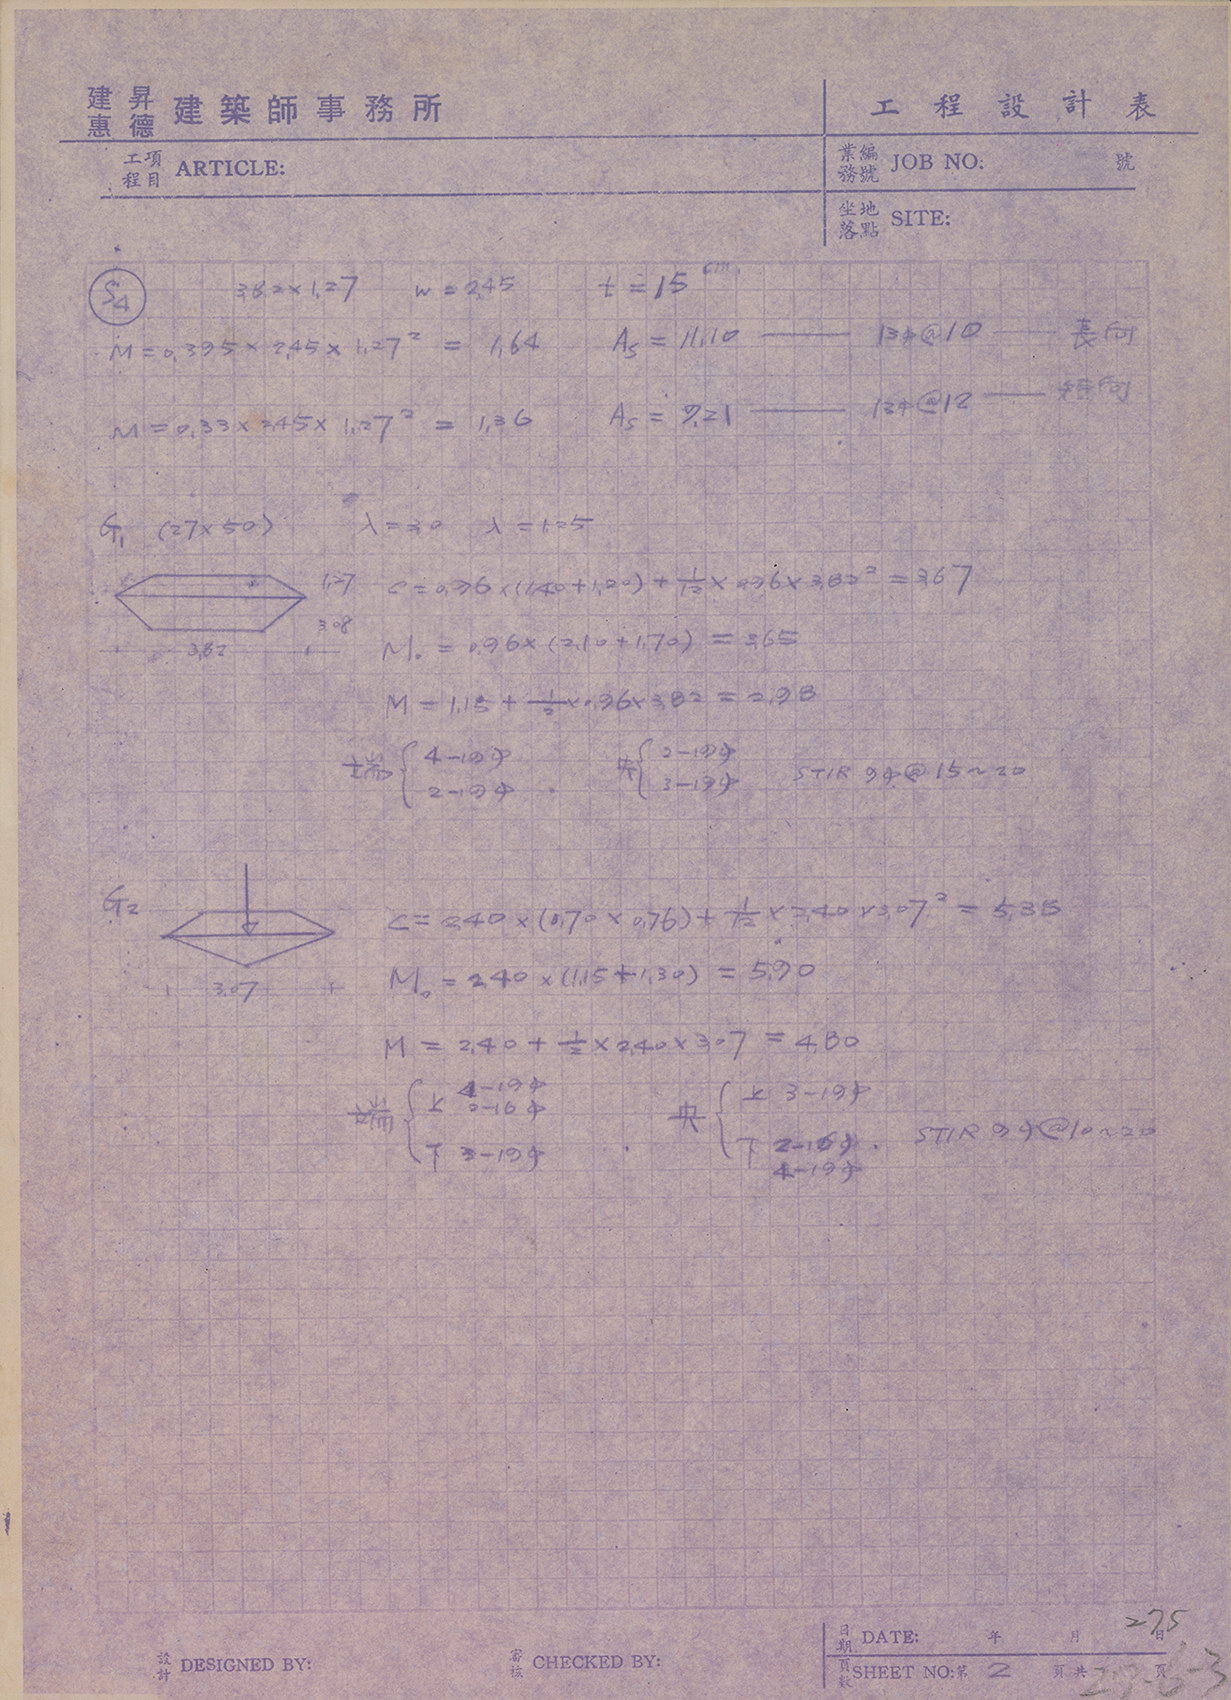 建昇 惠德 建築師事務所
工程設計表
工程項目 ARTICLE:
業務編號 JOB NO: 號
坐落地點 SITE:
S4 3.82×1.27 w=2.45 t=15 cm
M=0.395×2.45×1.27² = 1.64 As = 11.10 —— 13φ@10 —— 長向
M=0.33×2.45×1.27² = 1.36 As = 9.21 —— 13φ@12 —— 短向
G1 (27×50) λ=3.0 λ=1.25
1.27
3.08
3.82
C=0.96×(1.40+1.20)+1/12×0.96×3.82²=3.67
M₀=0.96×(2.10+1.70)=3.65
M=1.15+1/2×0.96×3.82=2.98
端 { 4-19φ 央 { 2-19φ STIR 9φ@15~20
2-19φ 3-19φ
G2
3.07
C=2.40×(0.70×0.76)+1/12×2.40×3.07²=5.38
M₀=2.40×(1.15+1.30)=5.90
M=2.40+1/2×2.40×3.07=4.80
端 { 上 4-19φ 2-16φ 央 { 上 3-19φ
下 3-19φ 下 2-16φ 4-19φ STIR 9φ@10~20
275
日期 DATE: 年 月 日
設計 DESIGNED BY: 審核 CHECKED BY:
頁數 SHEET NO: 第 2 頁 共 頁